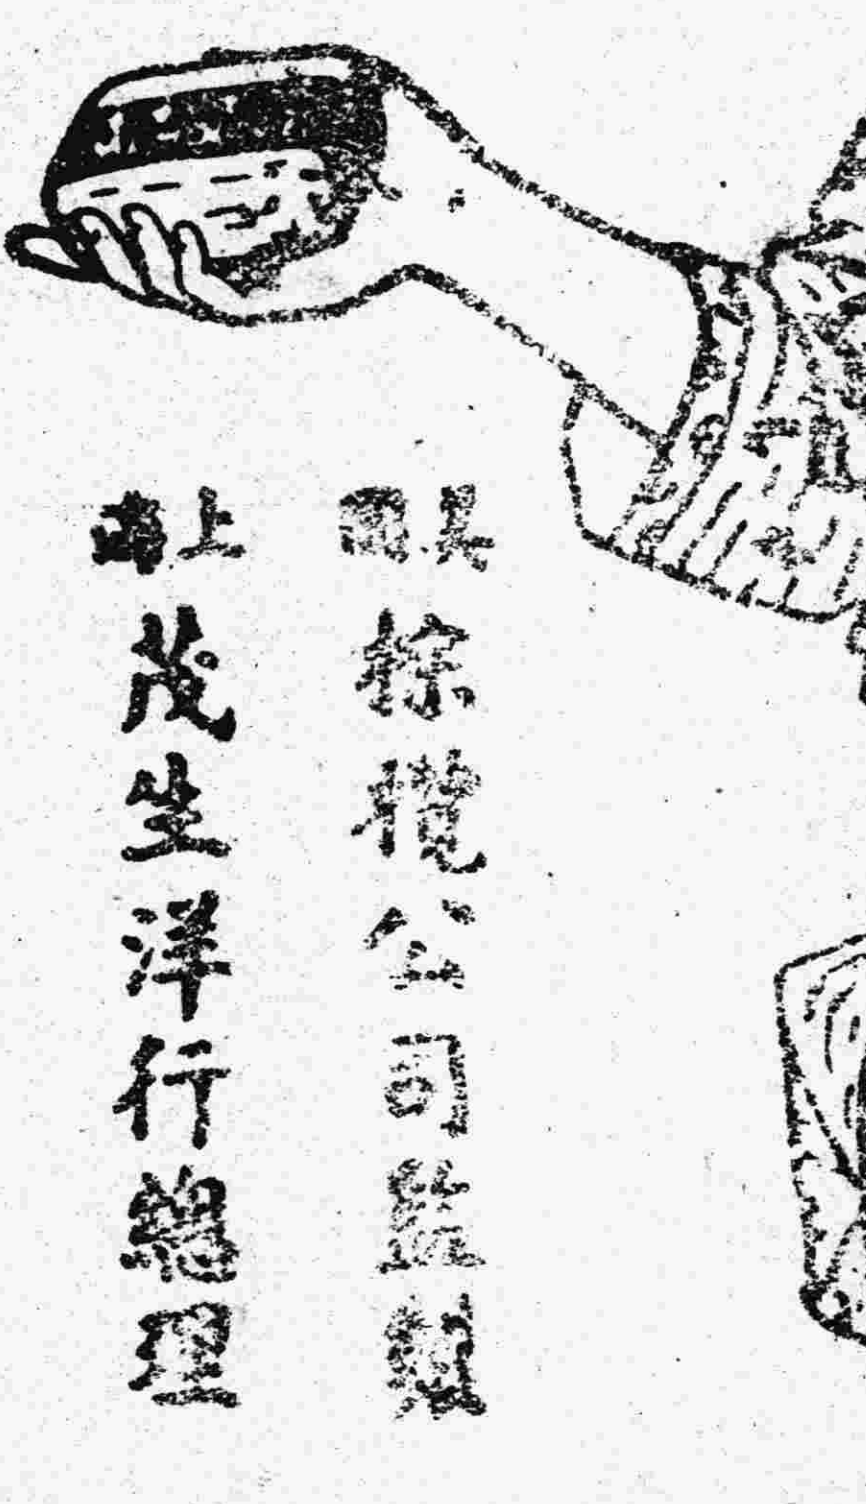 美國棕欖公司監製
上海茂生洋行總理